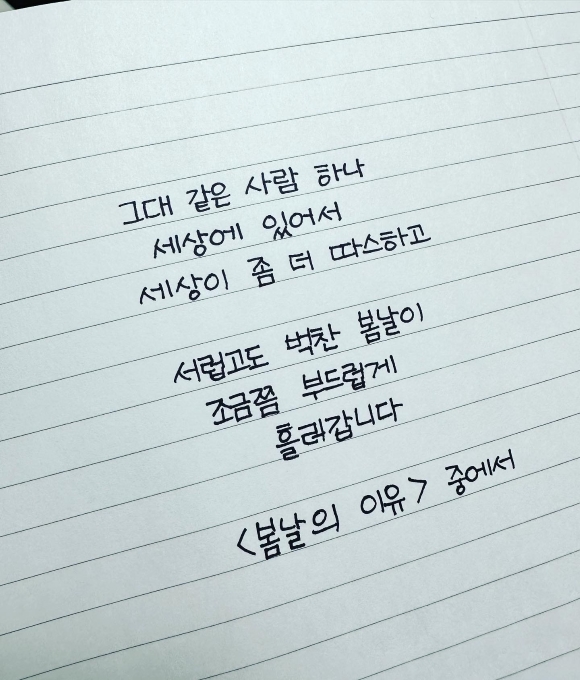 그대 같은 사람 하나
세상에 있어서
세상이 좀 더 따스하고
서럽고도 벅찬 봄날이
조금쯤 부드럽게
흘러갑니다
<봄날의 이유> 중에서